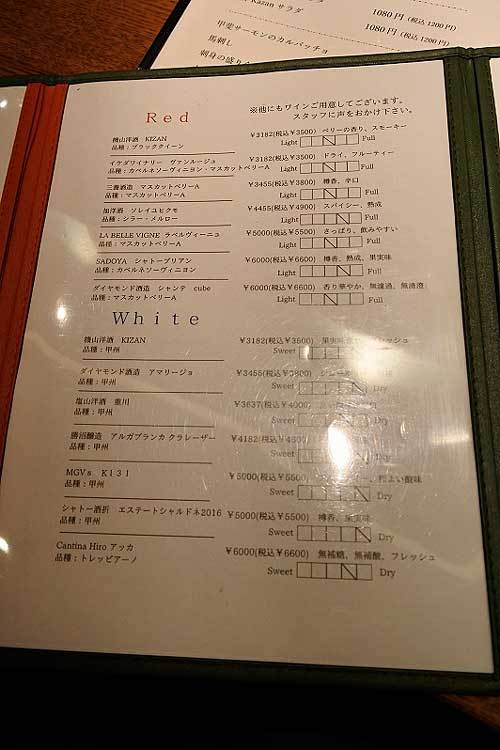 Kazan サラダ
1080円 (税込1200円)
甲斐サーモンのカルパッチョ
1080円 (税込1200円)
馬刺し
刺身の盛り
Red
※他にもワインご用意してございます。
スタッフに声をおかけ下さい。
機山洋酒 KIZAN ¥3182(税込¥3500) ベリーの香り、スモーキー
品種：ブラッククイーン Light N Full
イケダワイナリー ヴァンルージュ ¥3182(税込¥3500) ドライ、フルーティー
品種：カベルネソーヴィニヨン・マスカットベリーA Light N Full
三養醸造 マスカットベリーA ¥3455(税込¥3800) 樽香、辛口
品種：マスカットベリーA Light N Full
旭洋酒 ソレイユピクモ ¥4455(税込¥4900) スパイシー、熟成
品種：シラー・メルロー Light N Full
LA BELLE VIGNE ラベルヴィーニュ ¥5000(税込¥5500) さっぱり、飲みやすい
品種：マスカットベリーA Light N Full
SADOYA シャトーブリアン ¥6000(税込¥6600) 樽香、熟成、果実味
品種：カベルネソーヴィニヨン Light N Full
ダイヤモンド酒造 シャンテ cube ¥6000(税込¥6600) 香り華やか、無濾過、無清澄
品種：マスカットベリーA Light N Full
White
機山洋酒 KIZAN ¥3182(税込¥3500) 果実味 フレッシュ
品種：甲州 Sweet
ダイヤモンド酒造 アマリージョ ¥3455(税込¥3800)
品種：甲州 Dry
塩山洋酒 重川 ¥3637(税込¥4000)
品種：甲州
勝沼醸造 アルガブランカ クラレーザー ¥4182(税込¥4600)
品種：甲州
MGVs K131 ¥5000(税込¥5500) 程よい酸味
品種：甲州 Sweet N Dry
シャトー酒折 エステートシャルドネ2016 ¥5000(税込¥5500) 樽香、果実味
品種：甲州 Sweet N Dry
Cantina Hiro アッカ ¥6000(税込¥6600) 無補糖、無補酸、フレッシュ
品種：トレッビアーノ Sweet N Dry